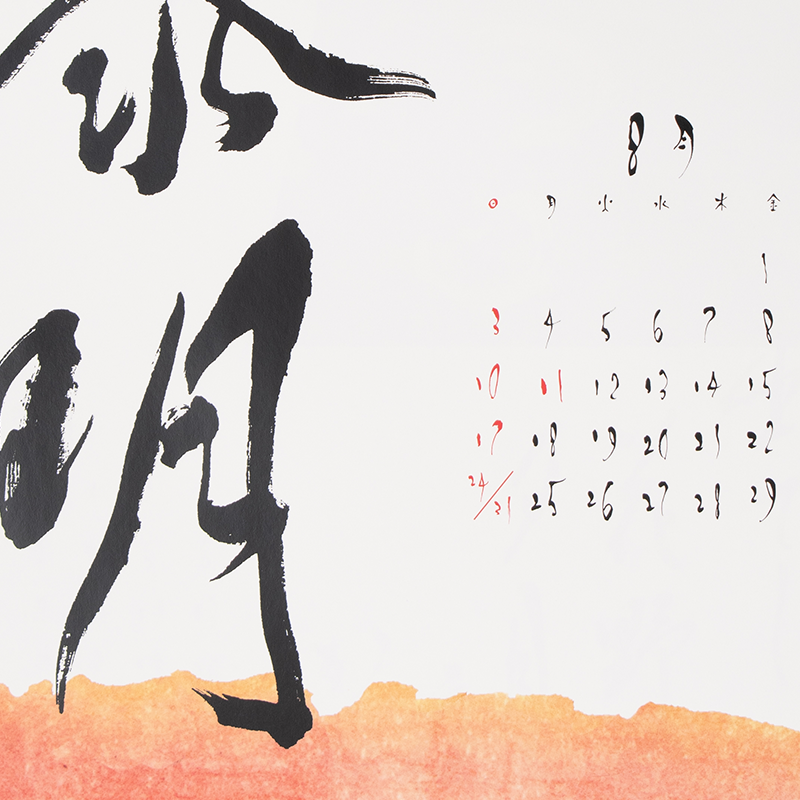 明
8月
日 月 火 水 木 金
1
3 4 5 6 7 8
10 11 12 13 14 15
17 18 19 20 21 22
24/31 25 26 27 28 29